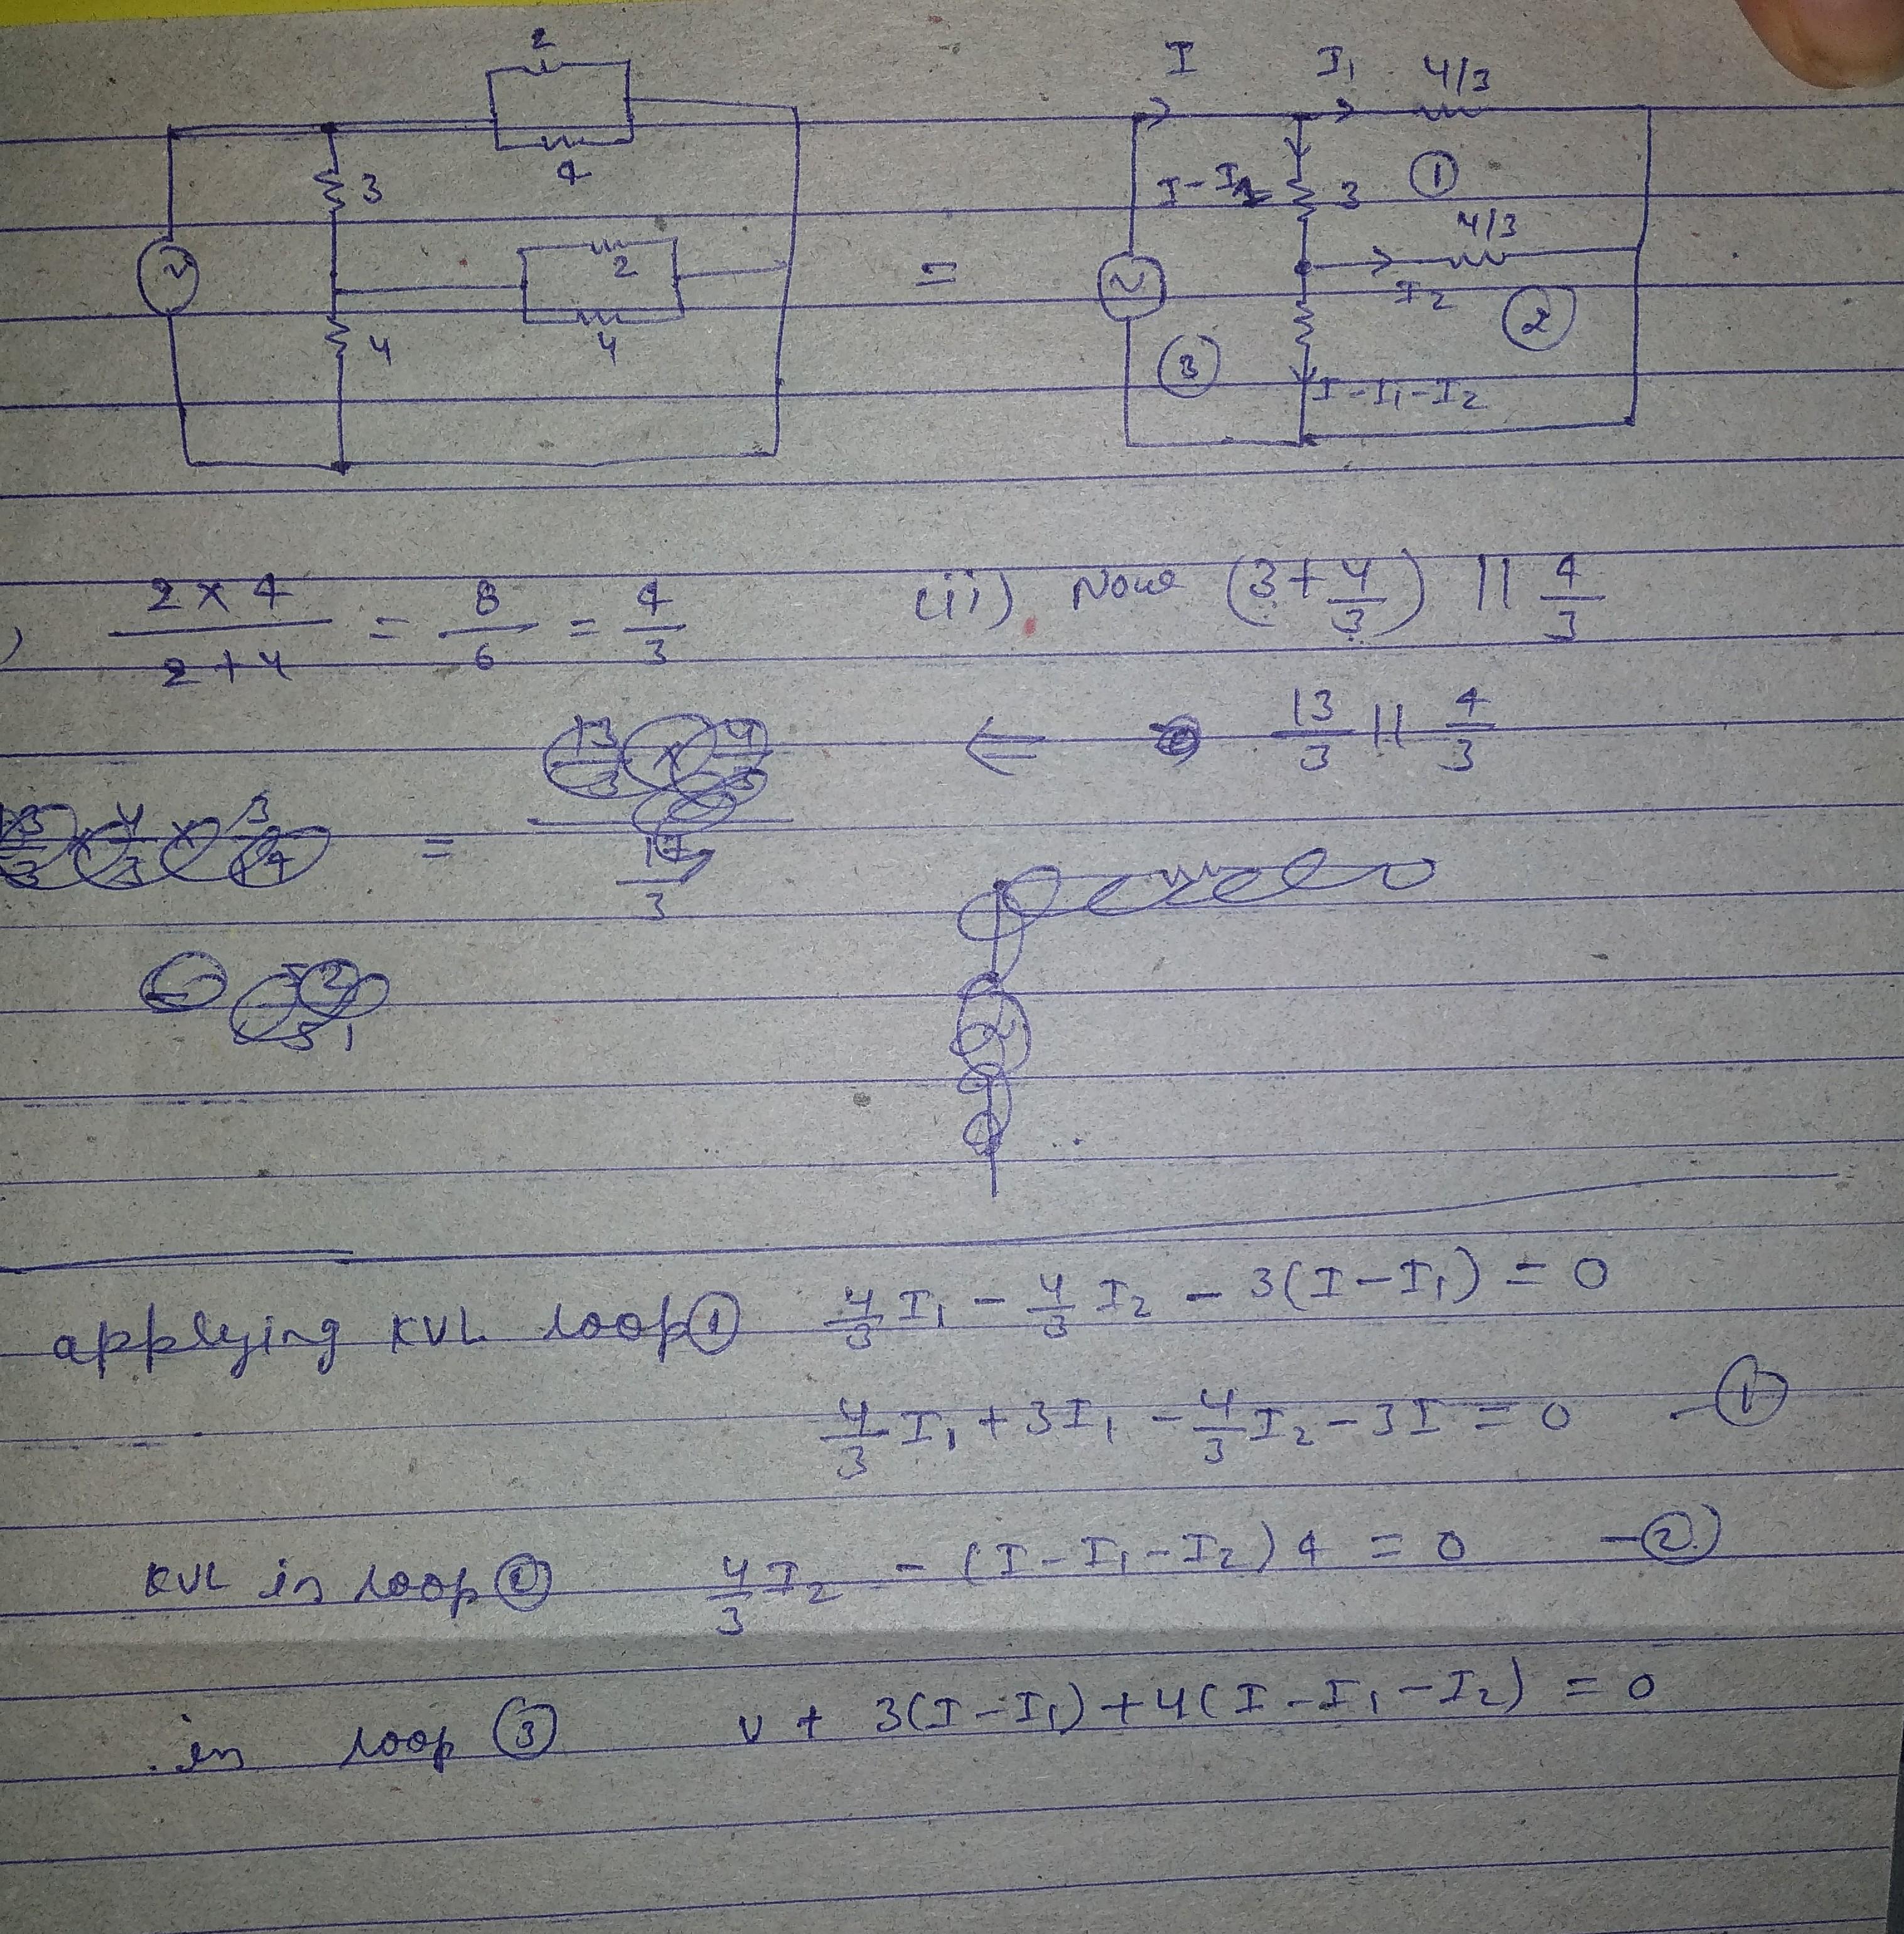 2
4
3
2
4
4
~
=
I I₁ 4/3
I-I₁ 3 ①
4/3
I₂ ②
~
③
I-I₁-I₂
) 2×4/2+4 = 8/6 = 4/3
(ii) Now (3+4/3) || 4/3
⇐ 13/3 || 4/3
=
applying KVL loop① 4/3 I₁ - 4/3 I₂ - 3(I-I₁) = 0
4/3 I₁ + 3I₁ - 4/3 I₂ - 3I = 0 -①
KVL in loop② 4/3 I₂ - (I-I₁-I₂)4 = 0 -②
in loop ③ V + 3(I-I₁)+4(I-I₁-I₂) = 0